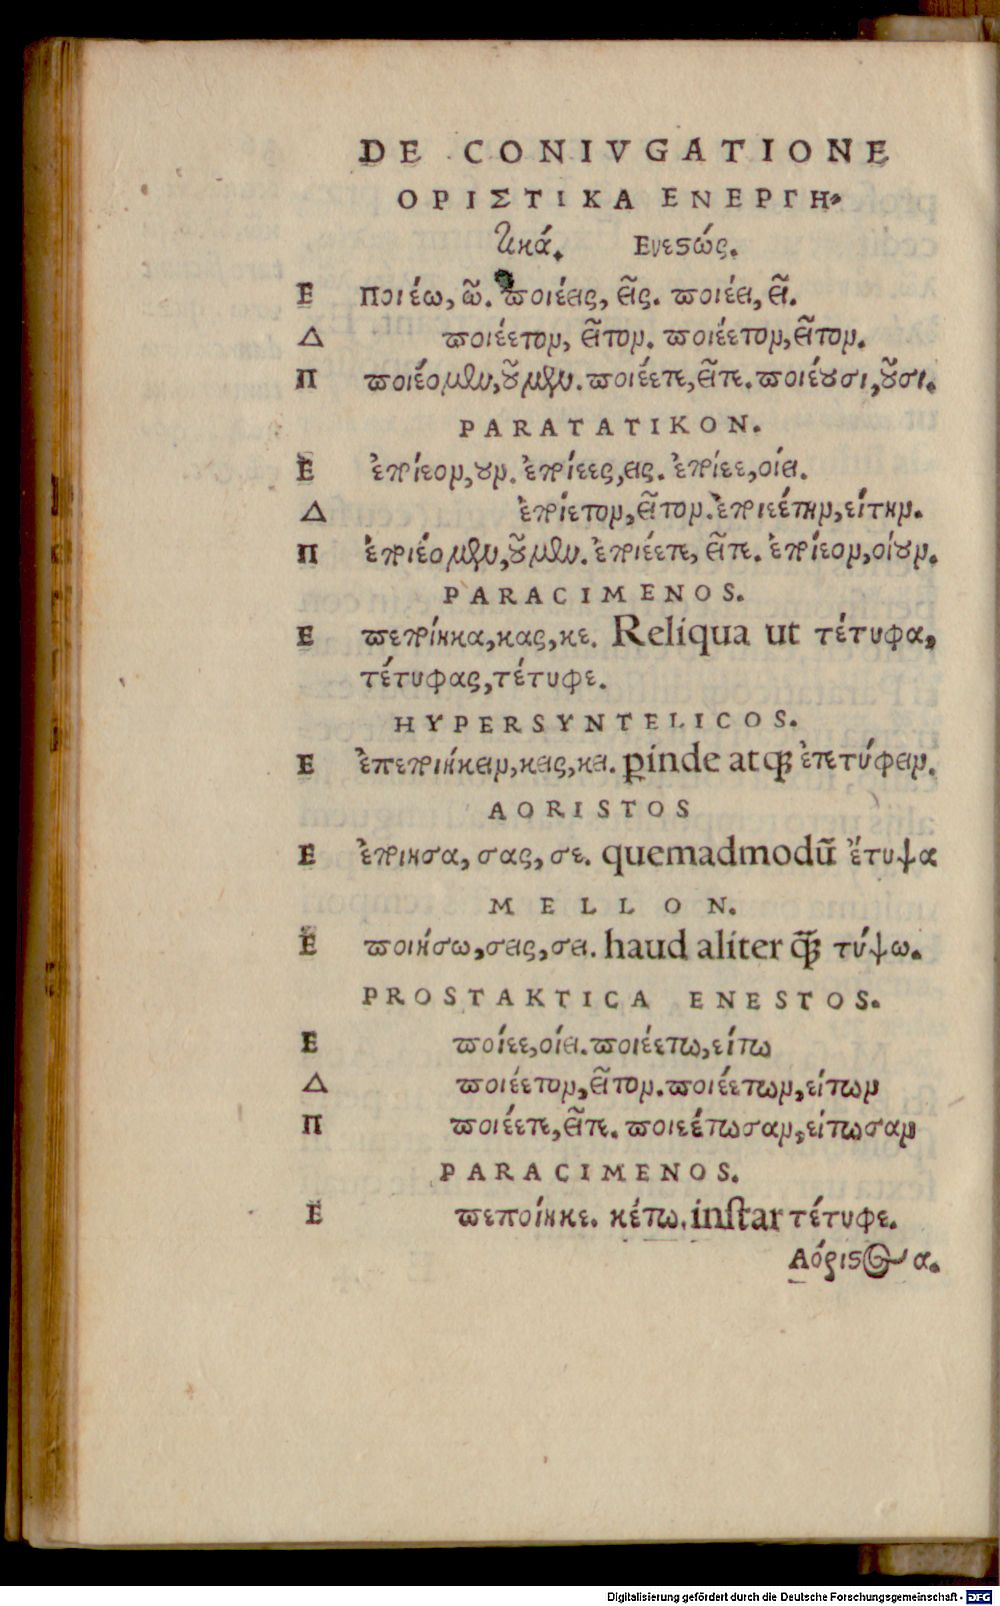 DE CONIVGATIONE
ΟΡΙΣΤΙΚΑ ΕΝΕΡΓΗ-
τικά. Ενεϛώς.
Ε ποιέω, ῶ. ποιέεις, εῖς. ποιέει, εῖ.
Δ ποιέετον, εῖτον. ποιέετον, εῖτον.
Π ποιέομεν, οῦμεν. ποιέετε, εῖτε. ποιέουσι, οῦσι.
PARATATIKON.
Ε ἐποίεον, ουν. ἐποίεες, εις. ἐποίεε, οίει.
Δ ἐποιέετον, εῖτον. ἐποιεέτην, είτην.
Π ἐποιέομεν, οῦμεν. ἐποιέετε, εῖτε. ἐποίεον, οίουν.
PARACIMENOS.
Ε πεποίηκα, κας, κε. Reliqua ut τέτυφα,
τέτυφας, τέτυφε.
HYPERSYNTELICOS.
Ε ἐπεποιήκειν, κεις, κει. ꝑinde atqꝫ ἐπετύφειν.
AORISTOS
Ε ἐποίησα, σας, σε. quemadmodū ἔτυψα
MELLON.
Ε ποιήσω, σεις, σει. haud aliter q̄ꝫ τύψω.
PROSTAKTICA ENESTOS.
Ε ποίεε, οίει. ποιεέτω, είτω
Δ ποιέετον, εῖτον. ποιεέτων, είτων
Π ποιέετε, εῖτε. ποιεέτωσαν, είτωσαν
PARACIMENOS.
Ε πεποίηκε. κέτω. instar τέτυφε.
Αόριϛος α.
Digitalisierung gefördert durch die Deutsche Forschungsgemeinschaft - DFG